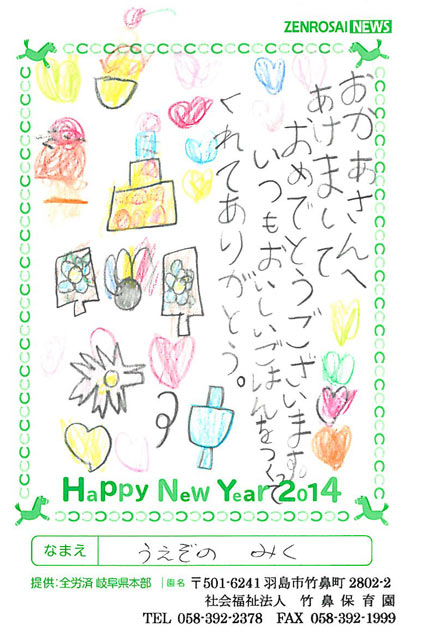 ZENROSAI NEWS
おかあさんへ
あけまいて
おめでとうございます。
いつもおいしいごはんをつくって
くれてありがとう。
Happy New Year 2014
なまえ うえぞの みく
提供:全労済 岐阜県本部 園名 〒501-6241 羽島市竹鼻町 2802-2
社会福祉法人 竹鼻保育園
TEL 058-392-2378 FAX 058-392-1999